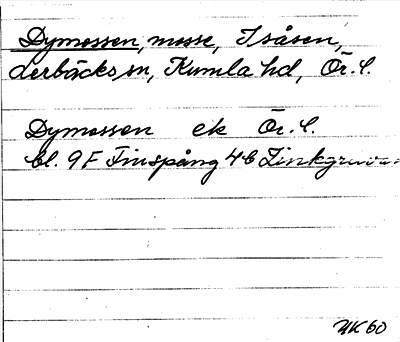 Dymossen, mosse, Isåsen,
derbäcks sn, Kumla hd, Ör. l.
Dymossen ek Ör. l.
bl. 9F Finspång 4b Zinkgruva
UK 60